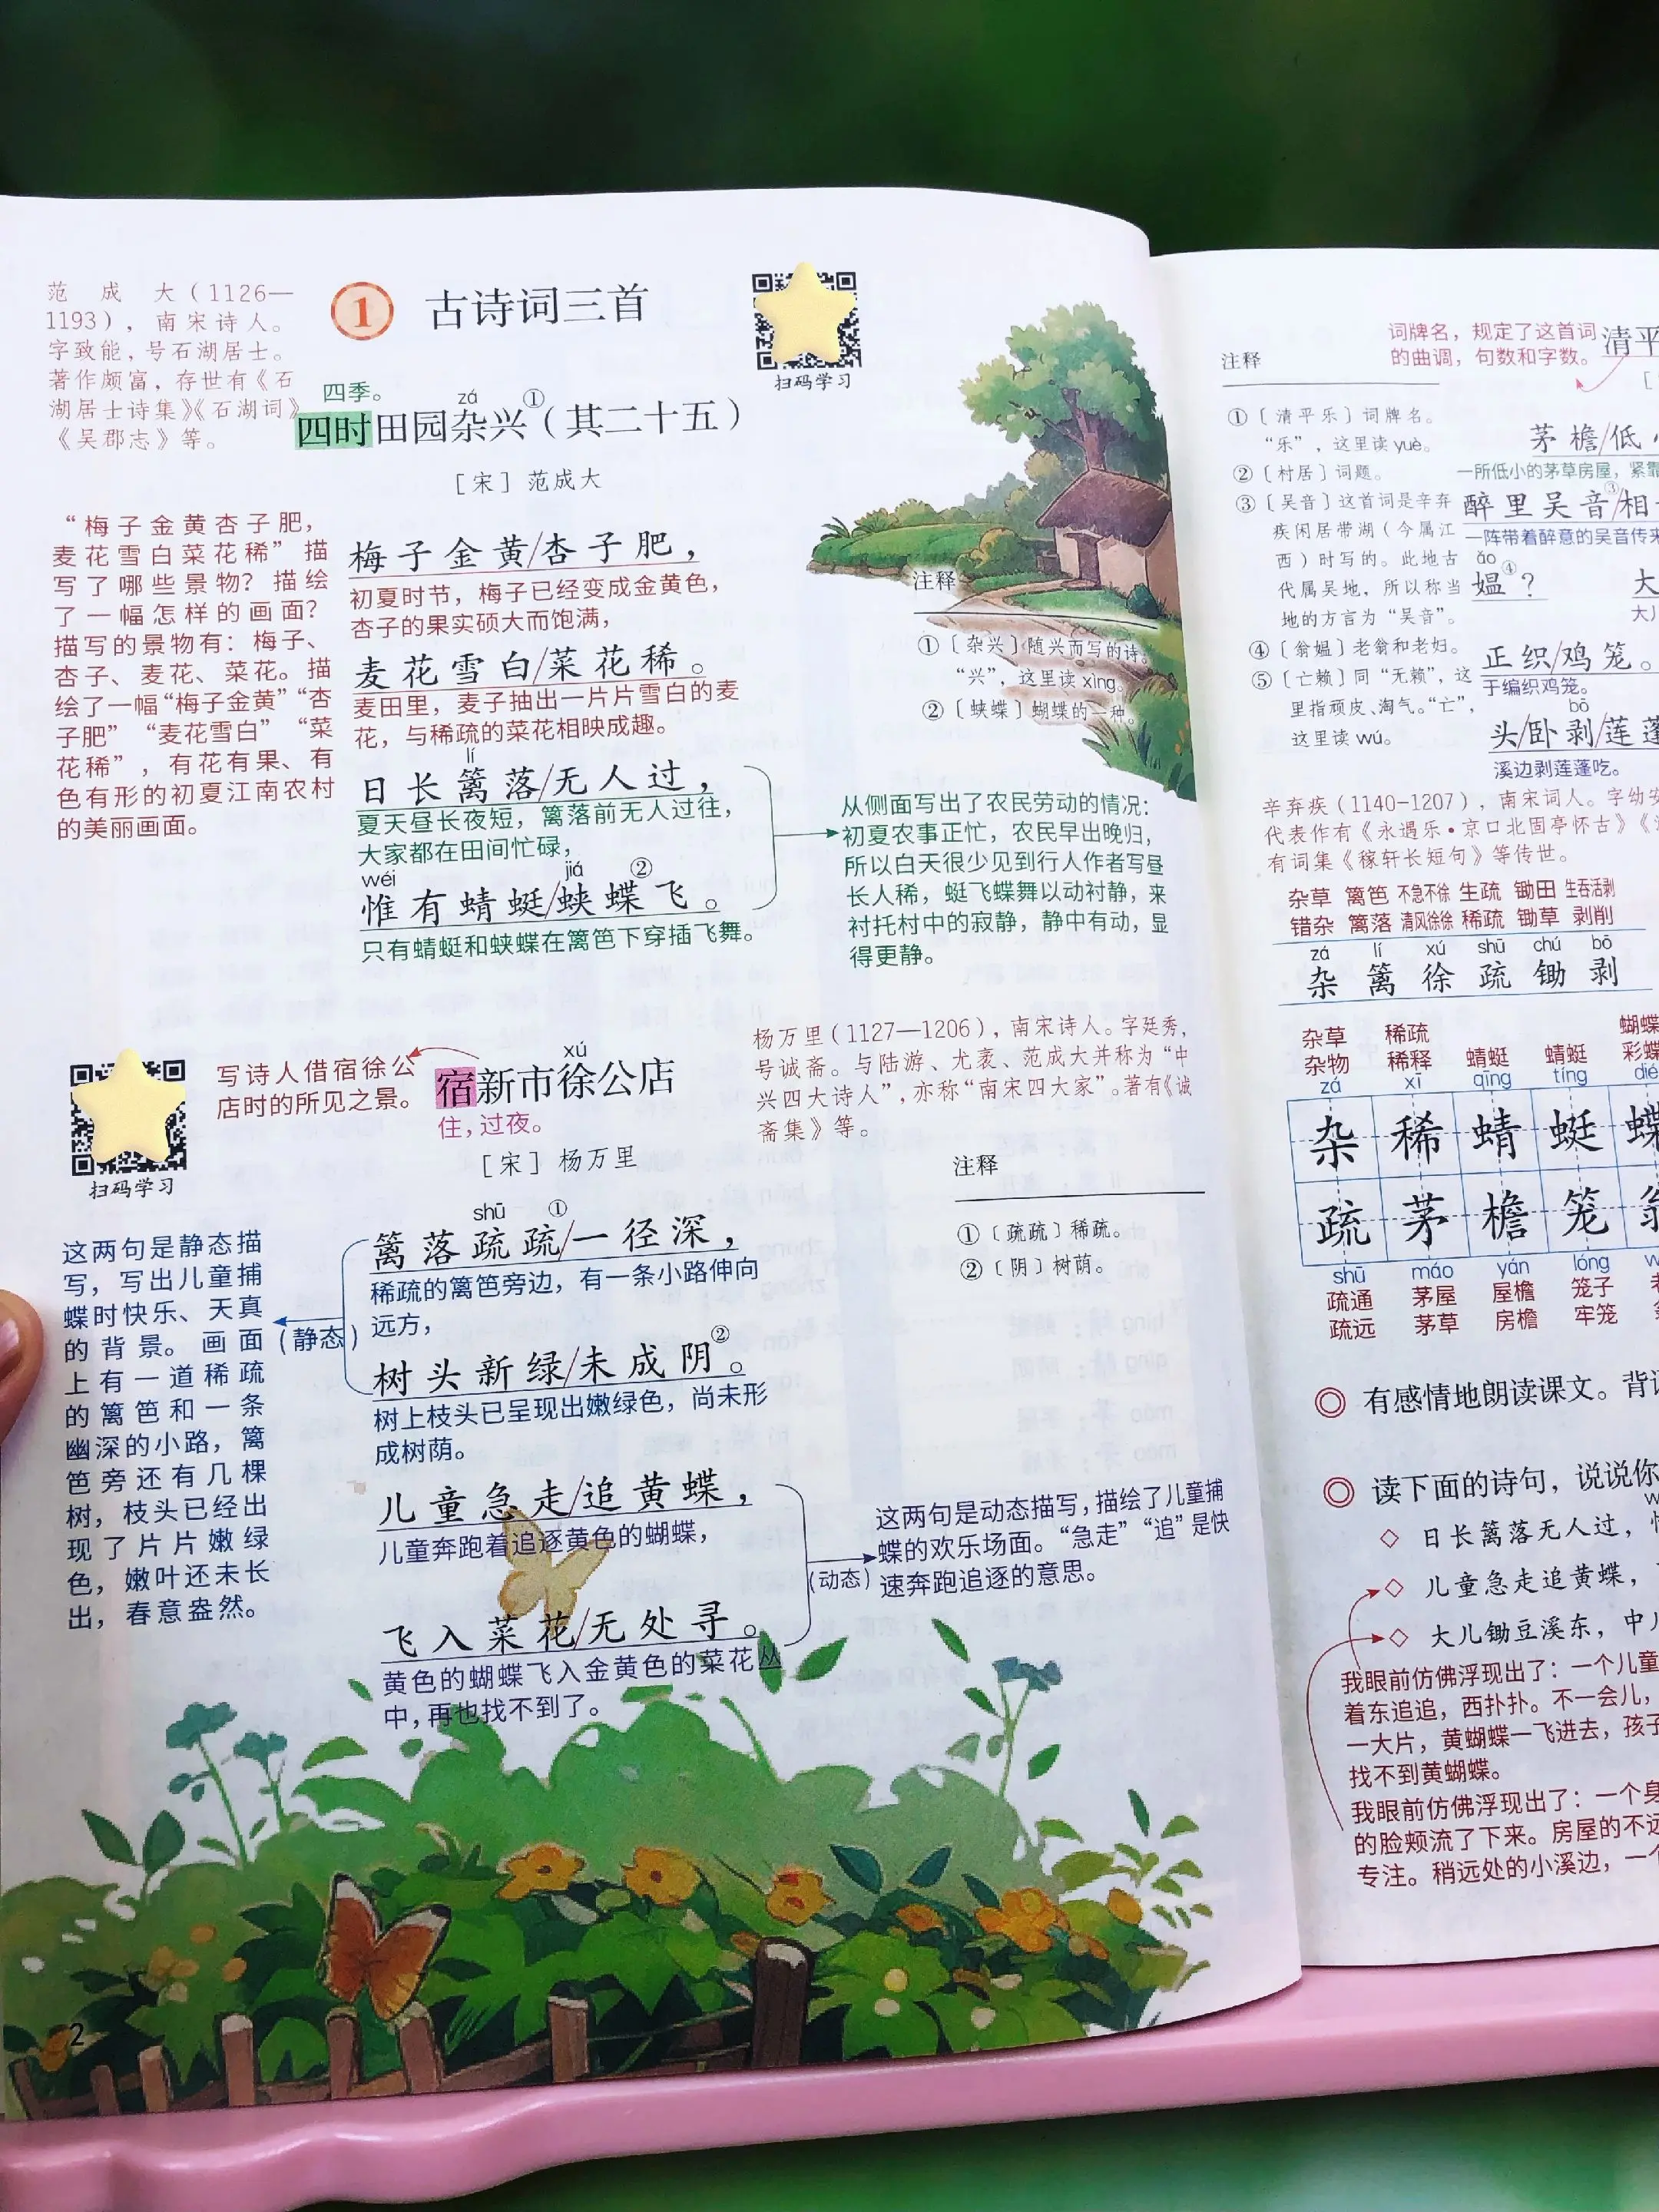 范成大(1126—
1193),南宋诗人。
字致能,号石湖居士。
著作颇富,存世有《石
湖居士诗集》《石湖词》
《吴郡志》等。
1 古诗词三首
扫码学习
四季。
zá
四时田园杂兴①(其二十五)
[宋]范成大
“梅子金黄杏子肥,
麦花雪白菜花稀”描
写了哪些景物?描绘
了一幅怎样的画面?
描写的景物有:梅子、
杏子、麦花、菜花。描
绘了一幅“梅子金黄”“杏
子肥”“麦花雪白”“菜
花稀”,有花有果、有
色有形的初夏江南农村
的美丽画面。
梅子金黄/杏子肥,
初夏时节,梅子已经变成金黄色,
杏子的果实硕大而饱满,
麦花雪白/菜花稀。
麦田里,麦子抽出一片片雪白的麦
花,与稀疏的菜花相映成趣。
lí
日长篱落/无人过,
夏天昼长夜短,篱落前无人过往,
大家都在田间忙碌,
wéi jiá ②
惟有蜻蜓/蛱蝶飞。
只有蜻蜓和蛱蝶在篱笆下穿插飞舞。
注释
①〔杂兴〕随兴而写的诗。
“兴”,这里读xìng。
②〔蛱蝶〕蝴蝶的一种。
从侧面写出了农民劳动的情况:
初夏农事正忙,农民早出晚归,
所以白天很少见到行人作者写昼
长人稀,蜓飞蝶舞以动衬静,来
衬托村中的寂静,静中有动,显
得更静。
扫码学习
写诗人借宿徐公
店时的所见之景。
xú
宿新市徐公店
住,过夜。
[宋]杨万里
杨万里(1127—1206),南宋诗人。字廷秀,
号诚斋。与陆游、尤袤、范成大并称为“中
兴四大诗人”,亦称“南宋四大家”。著有《诚
斋集》等。
注释
①〔疏疏〕稀疏。
②〔阴〕树荫。
这两句是静态描
写,写出儿童捕
蝶时快乐、天真
的背景。画面
上有一道稀疏
的篱笆和一条
幽深的小路,篱
笆旁还有几棵
树,枝头已经出
现了片片嫩绿
色,嫩叶还未长
出,春意盎然。
(静态)
shū ①
篱落疏疏/一径深,
稀疏的篱笆旁边,有一条小路伸向
远方,
②
树头新绿/未成阴。
树上枝头已呈现出嫩绿色,尚未形
成树荫。
儿童急走/追黄蝶,
儿童奔跑着追逐黄色的蝴蝶,
飞入菜花/无处寻。
黄色的蝴蝶飞入金黄色的菜花丛
中,再也找不到了。
(动态)
这两句是动态描写,描绘了儿童捕
蝶的欢乐场面。“急走”“追”是快
速奔跑追逐的意思。
2
词牌名,规定了这首词
的曲调,句数和字数。
清平
注释
①〔清平乐〕词牌名。
“乐”,这里读yuè。
②〔村居〕词题。
③〔吴音〕这首词是辛弃
疾闲居带湖(今属江
西)时写的。此地古
代属吴地,所以称当
地的方言为“吴音”。
④〔翁媪〕老翁和老妇。
⑤〔亡赖〕同“无赖”,这
里指顽皮、淘气。“亡”,
这里读wú。
茅檐/低
一所低小的茅草房屋,紧靠
③
醉里吴音/相
一阵带着醉意的吴音传来
ǎo ④
媪? 大
大儿
正织/鸡笼。
于编织鸡笼。
bō
头/卧剥/莲蓬
溪边剥莲蓬吃。
辛弃疾(1140-1207),南宋词人。字幼安
代表作有《永遇乐·京口北固亭怀古》《
有词集《稼轩长短句》等传世。
杂草 篱笆 不急不徐 生疏 锄田 生吞活剥
错杂 篱落 清风徐徐 稀疏 锄草 剥削
zá lí xú shū chú bō
杂 篱 徐 疏 锄 剥
杂草 稀疏 蝴蝶
杂物 稀释 蜻蜓 蜻蜓 彩蝶
zá xī qīng tíng dié
杂 稀 蜻 蜓 蝶
疏 茅 檐 笼 翁
shū máo yán lóng
疏通 茅屋 屋檐 笼子
疏远 茅草 房檐 牢笼
◎ 有感情地朗读课文。背
◎ 读下面的诗句,说说你
◇ 日长篱落无人过,
◇ 儿童急走追黄蝶,
◇ 大儿锄豆溪东,中
我眼前仿佛浮现出了:一个儿童
着东追追,西扑扑。不一会儿,
一大片,黄蝴蝶一飞进去,孩子
找不到黄蝴蝶。
我眼前仿佛浮现出了:一个身
的脸颊流了下来。房屋的不远
专注。稍远处的小溪边,一个